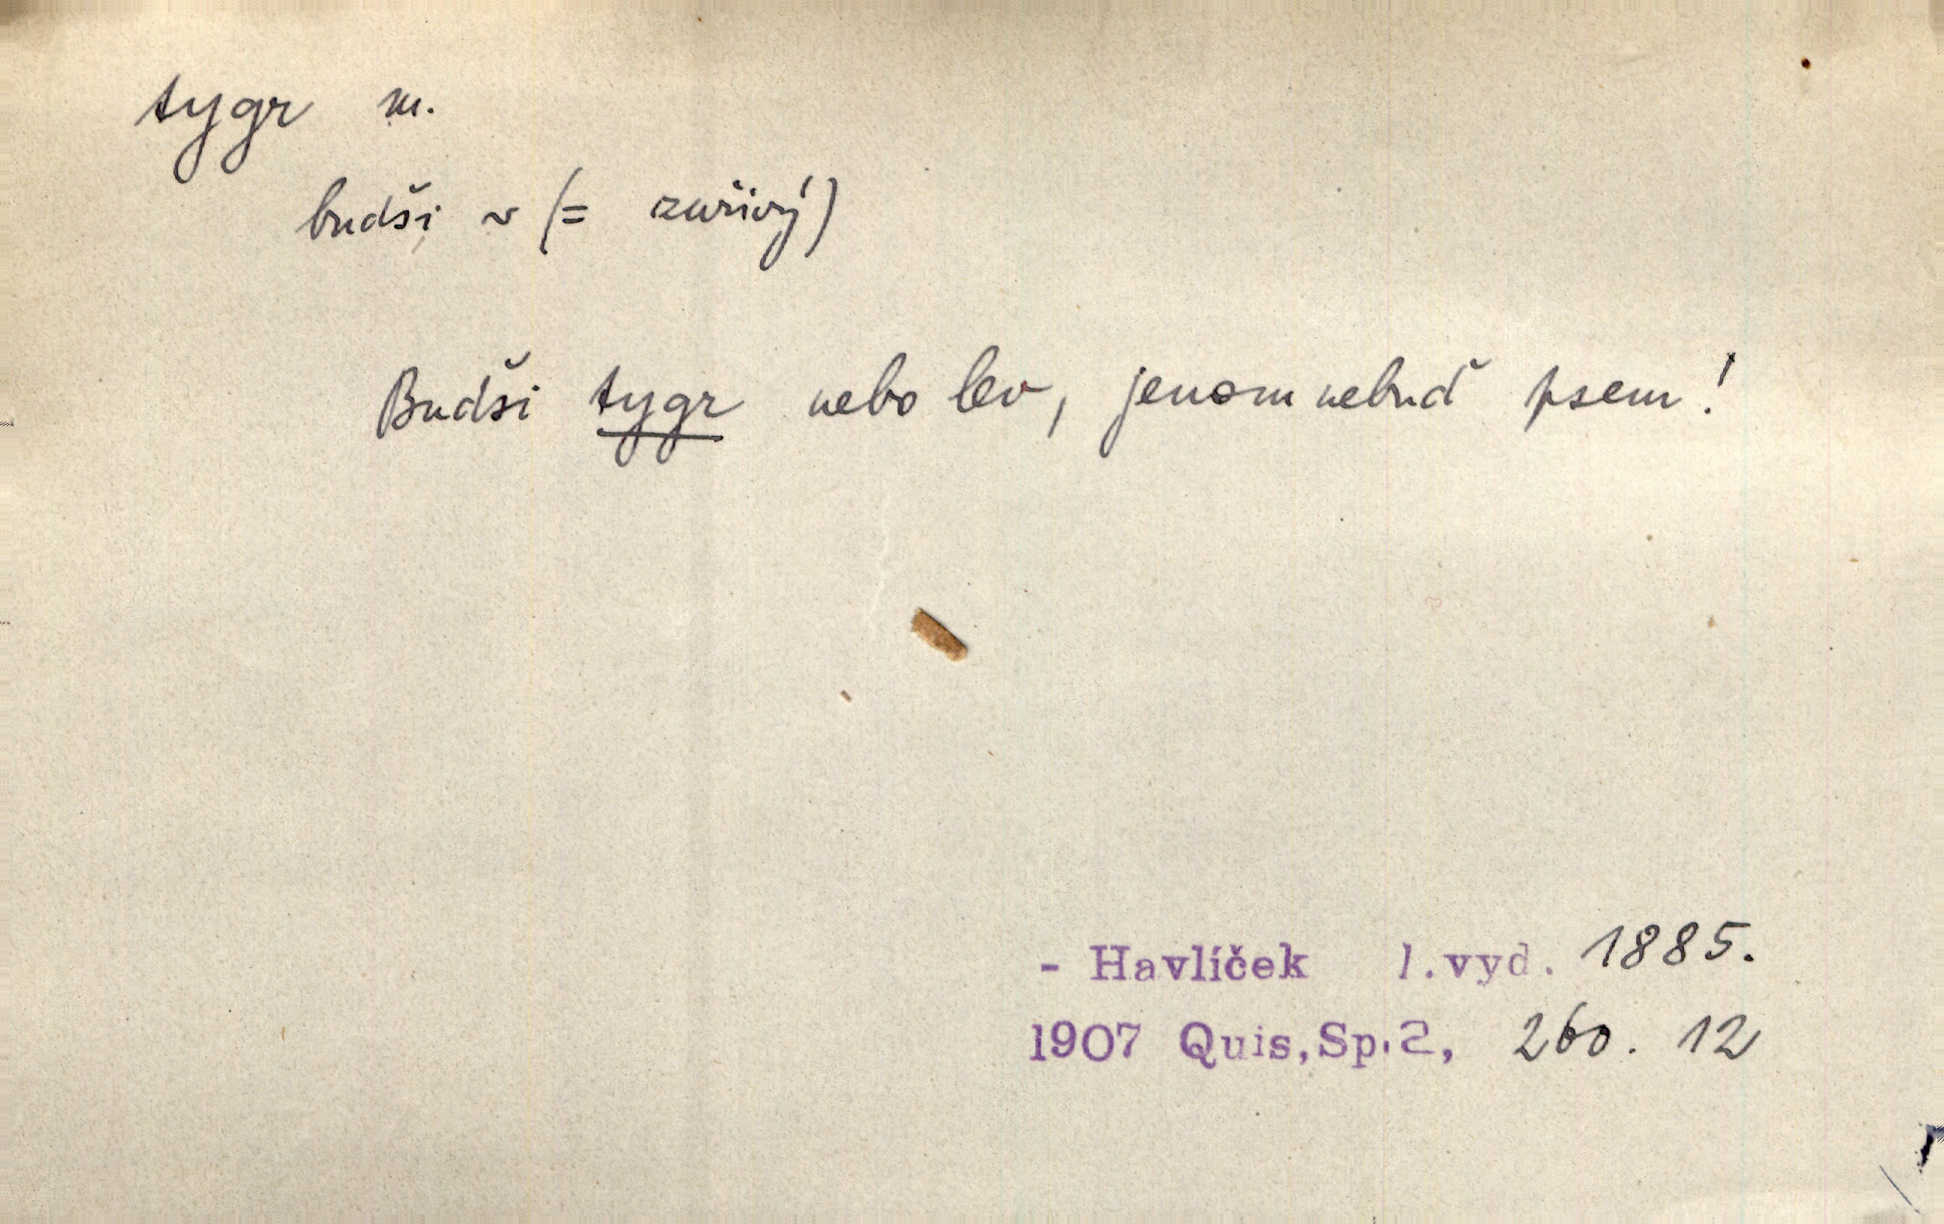 tygr m.
budši ~ (= zuřivý)
Budši tygr nebo lev, jenom nebuď psem!
- Havlíček 1.vyd. 1885.
1907 Quis,Sp.2, 260. 12